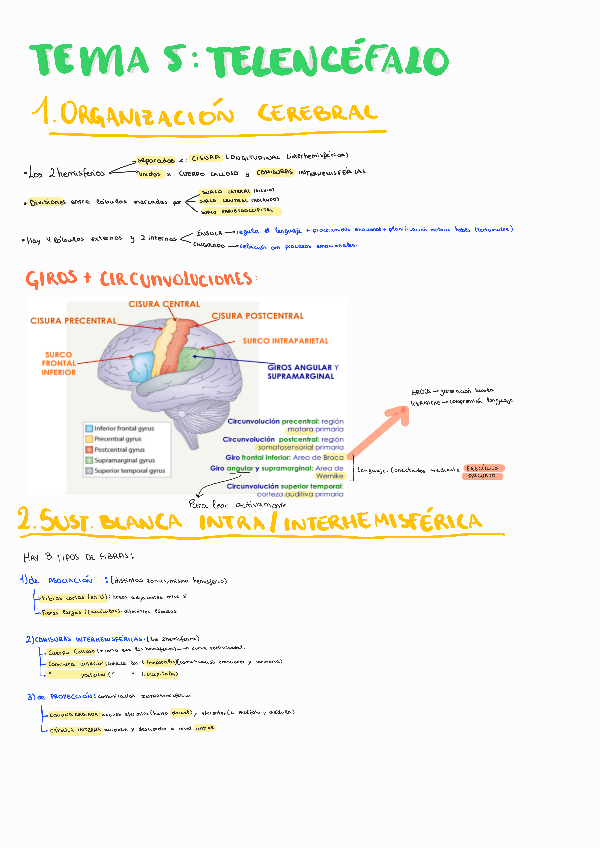 TEMA 5: TELENCÉFALO
1. ORGANIZACIÓN CEREBRAL
• Los 2 hemisferios
separados x: CISURA LONGITUDINAL (interhemisférica)
unidos x: CUERPO CALLOSO y COMISURAS INTERHEMISFERIAL
• Divisiones entre lóbulos marcadas por
SURCO LATERAL (SILVIO)
SURCO CENTRAL (ROLANDO)
SURCO PARIETOOCCIPITAL
• Hay 4 lóbulos externos y 2 internos
ÍNSULA → regula el lenguaje + procesamiento emocional + planificación motora habla
CINGULADO → relación con procesos emocionales.
GIROS + CIRCUNVOLUCIONES:
CISURA CENTRAL
CISURA PRECENTRAL
CISURA POSTCENTRAL
SURCO INTRAPARIETAL
SURCO FRONTAL INFERIOR
GIROS ANGULAR Y SUPRAMARGINAL
Inferior frontal gyrus
Precentral gyrus
Postcentral gyrus
Supramarginal gyrus
Superior temporal gyrus
Circunvolución precentral: región
motora primaria
Circunvolución postcentral: región
somatosensorial primaria
Giro frontal inferior: Area de Broca
Giro angular y supramarginal: Area de
Wernike
Circunvolución superior temporal:
corteza auditiva primaria
BROCA → generación habla
WERNICKE → comprensión lenguaje
Lenguaje. Conectados mediante FASCÍCULO
ARCUATO
Para leer activamente
2. SUST. BLANCA INTRA/INTERHEMISFÉRICA
HAY 3 TIPOS DE FIBRAS:
1) de ASOCIACIÓN: (distintas zonas, mismo hemisferio)
Fibras cortas (en U): áreas adyacentes entre sí
Fibras largas (fascículos): diferentes lóbulos
2) COMISURAS INTERHEMISFÉRICAS: (los 2 hemisferios)
Cuerpo Calloso
Comisura anterior (temporales)
" posterior (" " occipitales)
3) de PROYECCIÓN: comunicación
CORONA RADIADA
CÁPSULA INTERNA